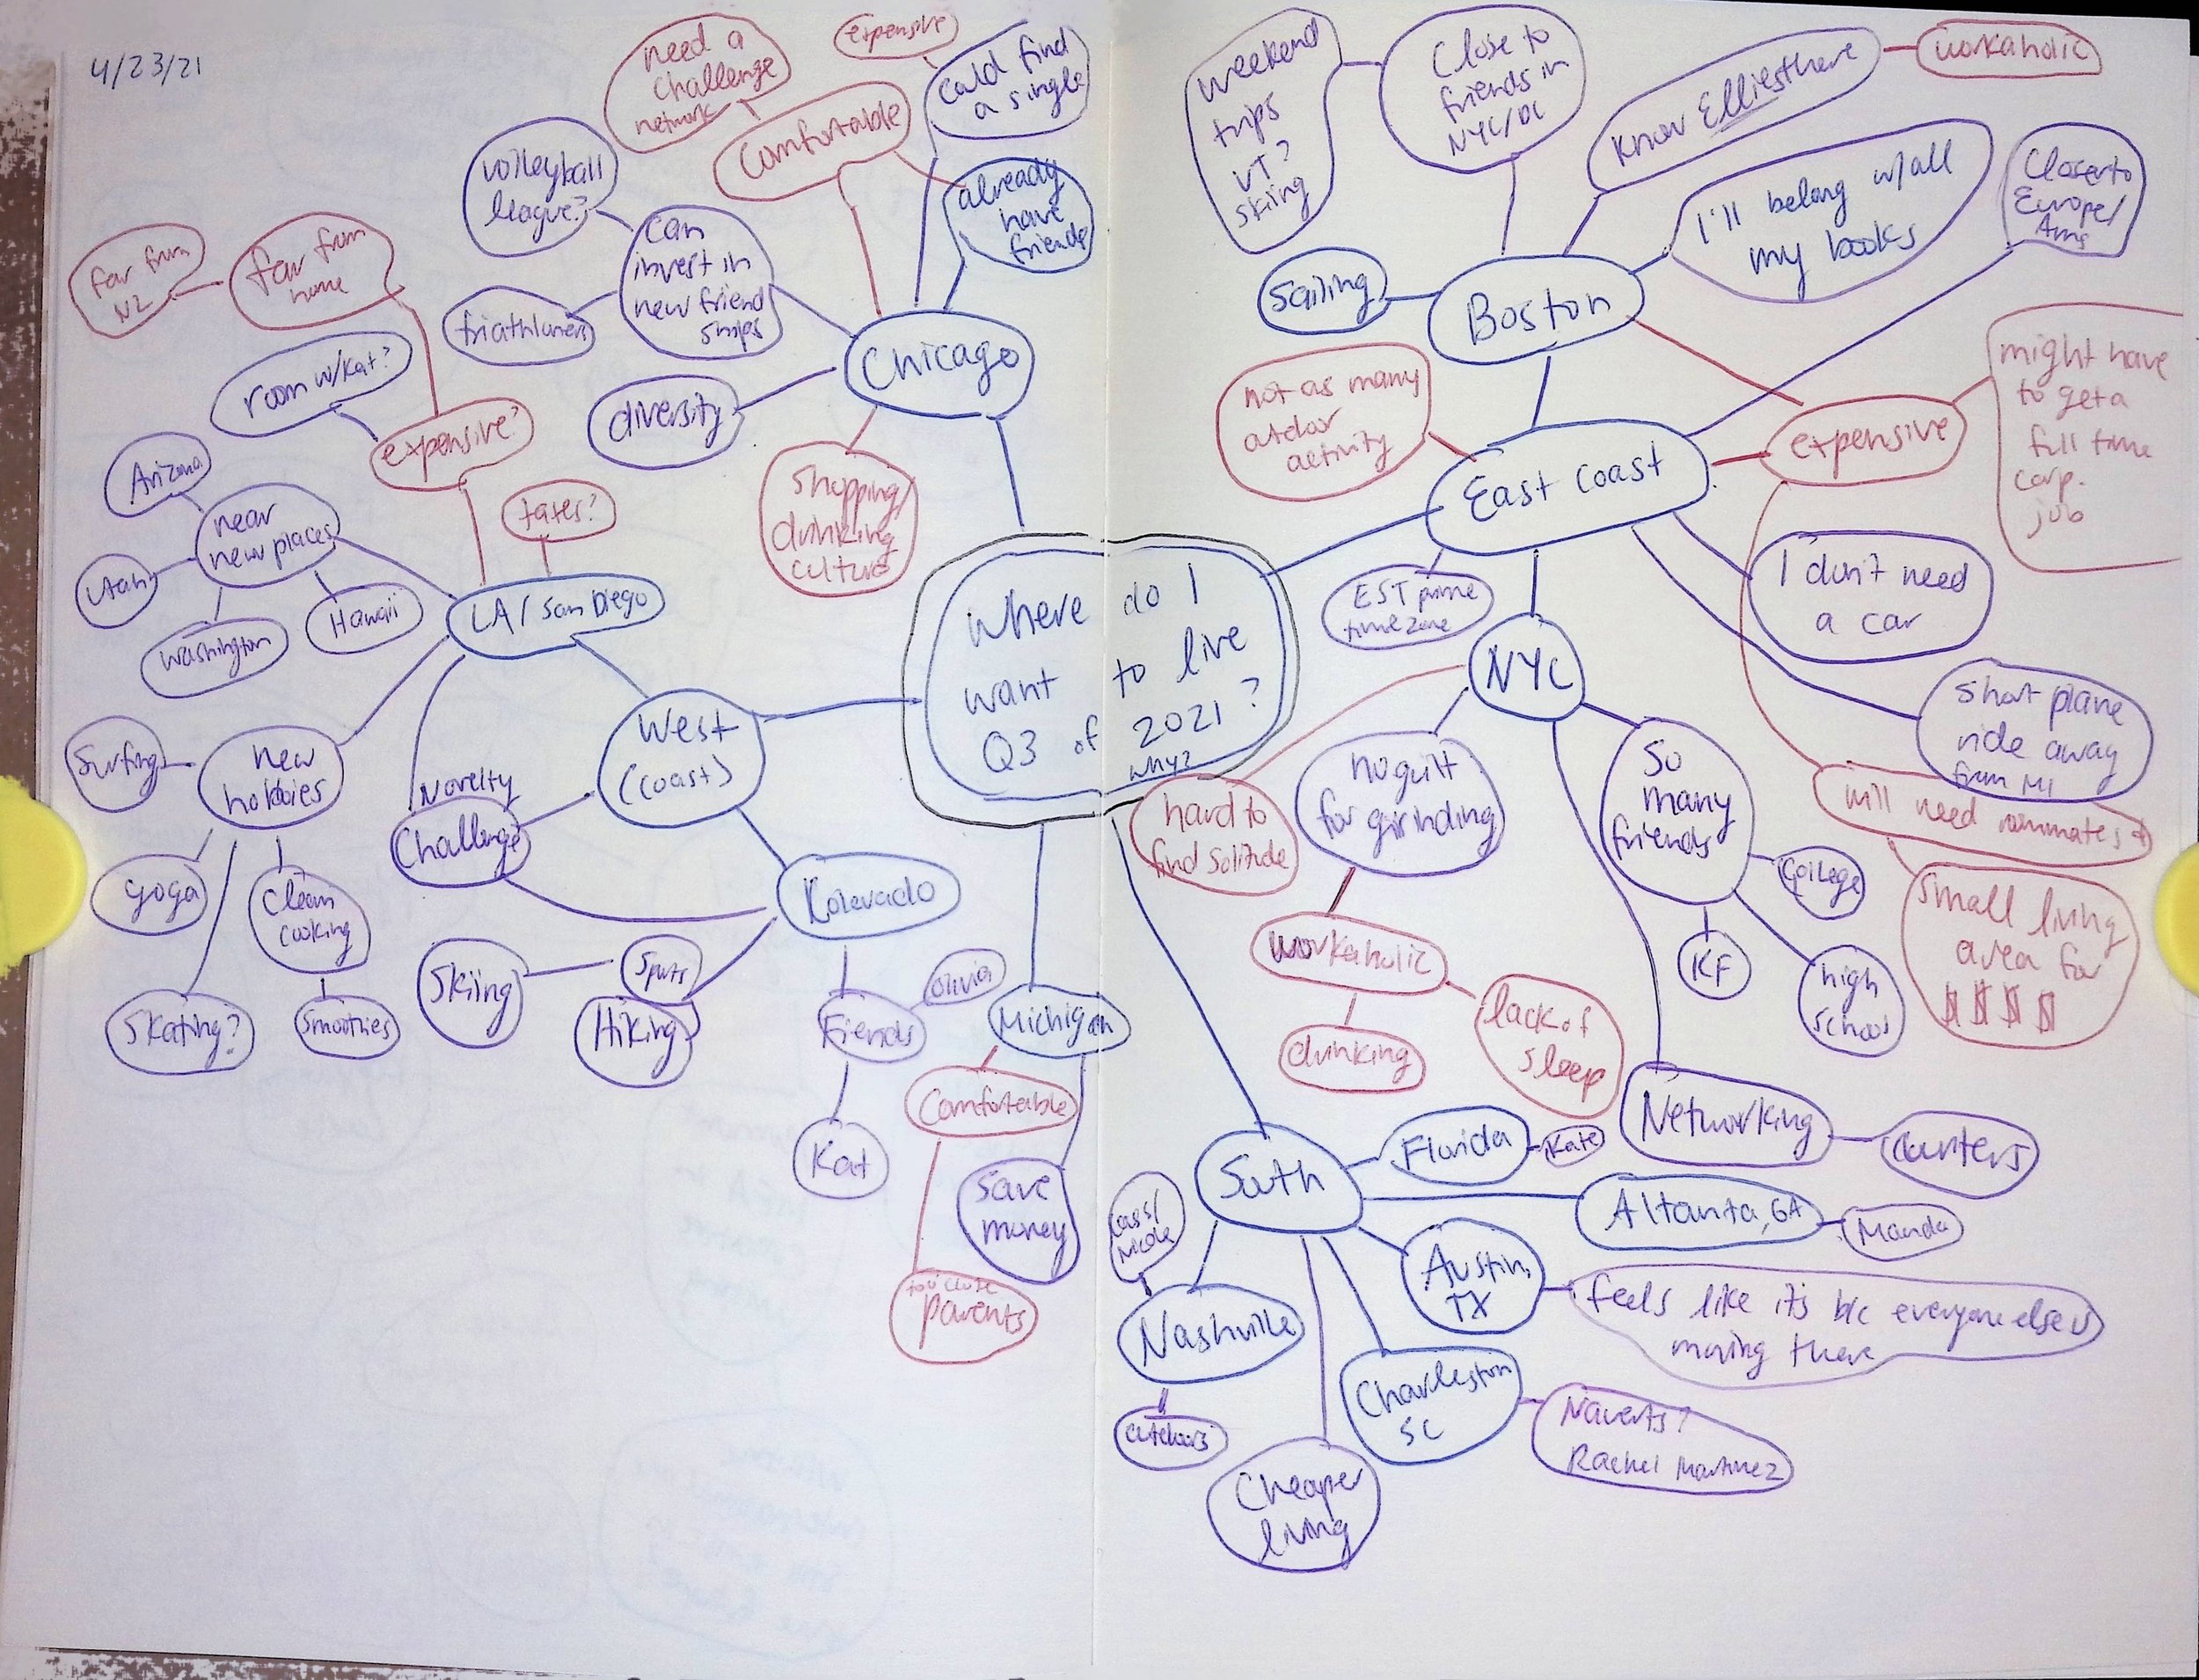 4/23/21
Where do I
want to live
Q3 of 2021?
why?
Chicago
already
have
friends
could find
a single
expensive
Comfortable
need a
challenge
network
can
invest in
new friend
ships
volleyball
league?
triathluners
diversity
Shopping/
drinking
culture
West
(coast)
LA/San Diego
taxes?
expensive?
room w/Kat?
far from
home
far from
NZ
near
new places
Arizona
Utah
Washington
Hawaii
new
hobbies
Surfing
yoga
Skating?
Clean
cooking
Smoothies
Novelty
Challenge
Kolorado
Sports
Hiking
Skiing
Friends
Olivia
Kat
Michigan
Comfortable
too close
parents
save
money
East coast
Boston
Sailing
Close to
friends in
NYC/DC
weekend
trips
VT?
skiing
Know Elliesthere
workaholic
I'll belong w/all
my books
Closer to
Europe/
Ams
not as many
outdoor
activity
expensive
might have
to get a
full time
corp.
job
EST prime
time zone
I don't need
a car
Short plane
ride away
from MI
will need roommates
small living
area for
$$$$
NYC
hard to
find solitude
no guilt
for grinding
workaholic
drinking
lack of
sleep
So
many
friends
College
KF
high
school
Networking
South
Florida
Kate
Altanta, GA
Manda
Austin,
TX
feels like it's b/c everyone else is
moving there
Charleston
SC
Rachel Martinez
Cheaper
living
Nashville
Nicole
outdoors